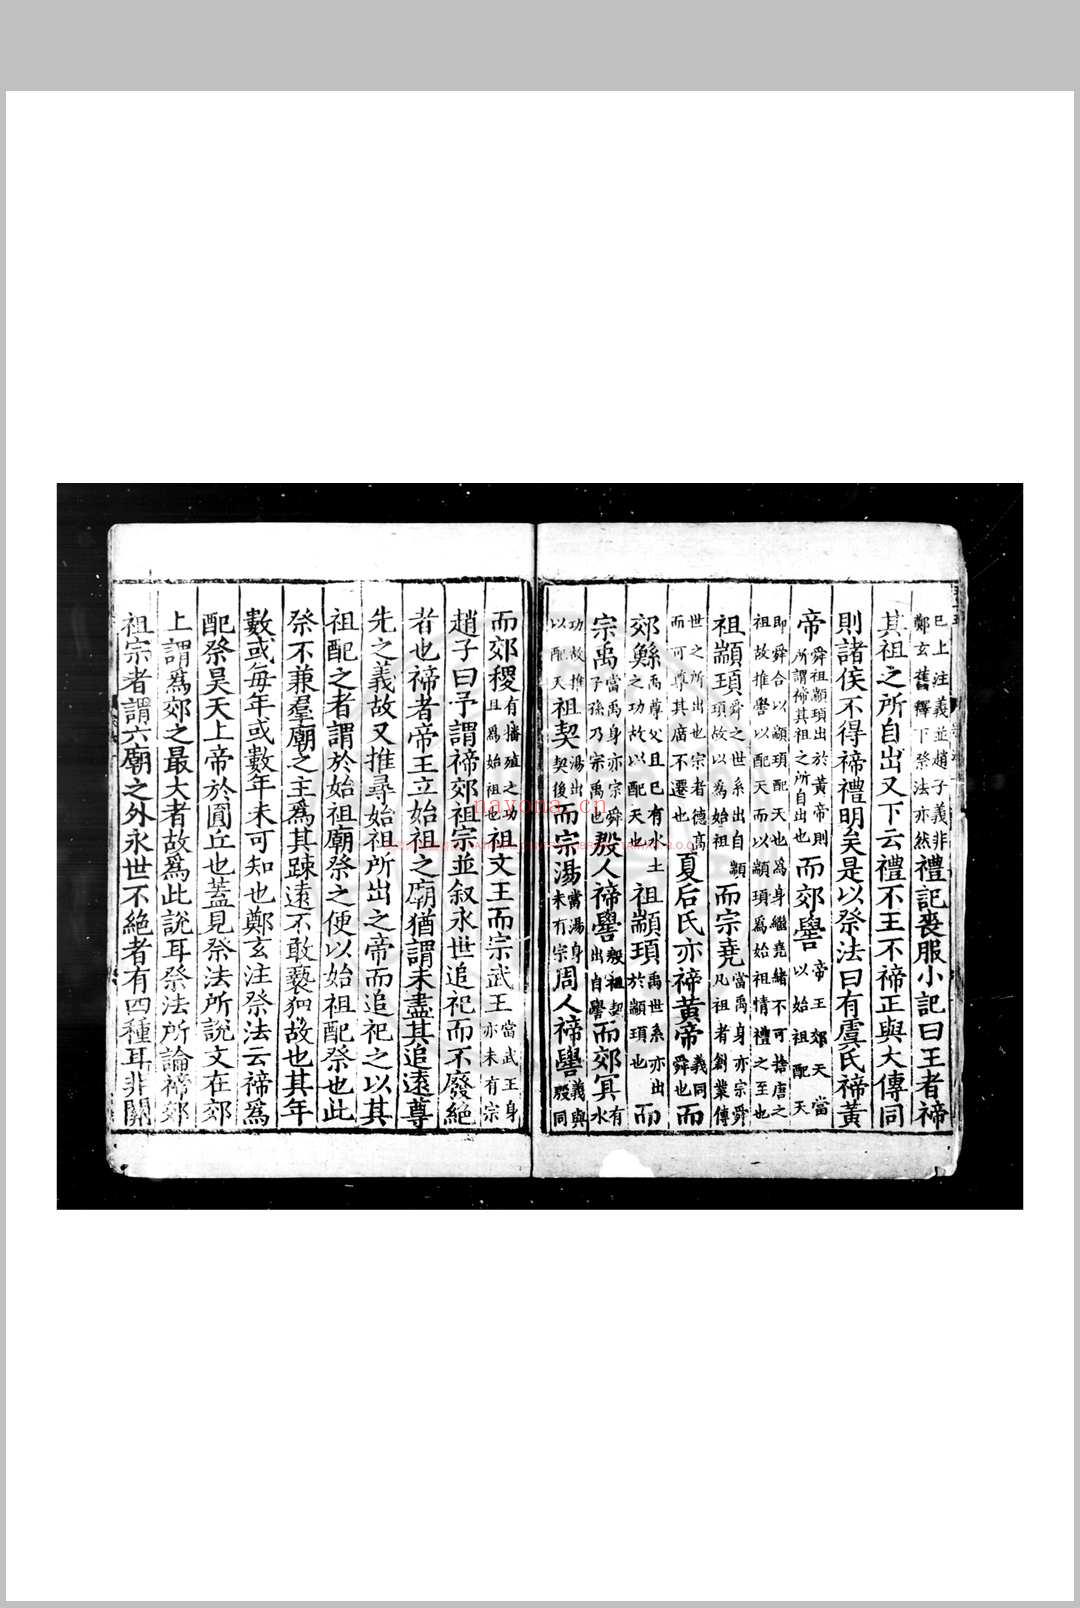 已上注義並趙子義非鄭玄舊釋下祭法亦然禮記喪服小記曰王者禘
其祖之所自出又下云禮不王不禘正與大傳同
則諸侯不得禘禮明矣是以祭法曰有虞氏禘黃
帝舜祖顓頊出於黃帝則所謂禘其祖之所自出也而郊嚳帝王郊天當以始祖配天
即舜合以顓頊配天也爲身繼堯緒不可捨唐之祖故推嚳以配天而以顓頊爲始祖情禮之至也
祖顓頊舜之世系出自顓頊故以爲始祖而宗堯當禹身亦宗舜凡祖者創業傳
世之所出也宗者德高而可尊其廣不遷也夏后氏亦禘黃帝義同舜也而
郊鯀禹尊父且已有水土之功故以配天也祖顓頊禹世系亦出於顓頊也而
宗禹當禹身亦宗舜子孫乃宗禹也殷人禘嚳殷祖契出自嚳而郊冥有水
功故推以配天祖契湯出契後而宗湯當湯身未有宗周人禘嚳義與殷同
而郊稷有播殖之功且爲始祖也祖文王而宗武王當武王身亦未有宗
趙子曰予謂禘郊祖宗並叙永世追祀而不廢絕
者也禘者帝王立始祖之廟猶謂未盡其追遠尊
先之義故又推尋始祖所出之帝而追祀之以其
祖配之者謂於始祖廟祭之便以始祖配祭也此
祭不兼羣廟之主爲其疎遠不敢褻狎故也其年
數或每年或數年未可知也鄭玄注祭法云禘爲
配祭昊天上帝於圓丘也蓋見祭法所說文在郊
上謂爲郊之最大者故爲此說耳祭法所論禘郊
祖宗者謂六廟之外永世不絕者有四種耳非關
nayona.cn